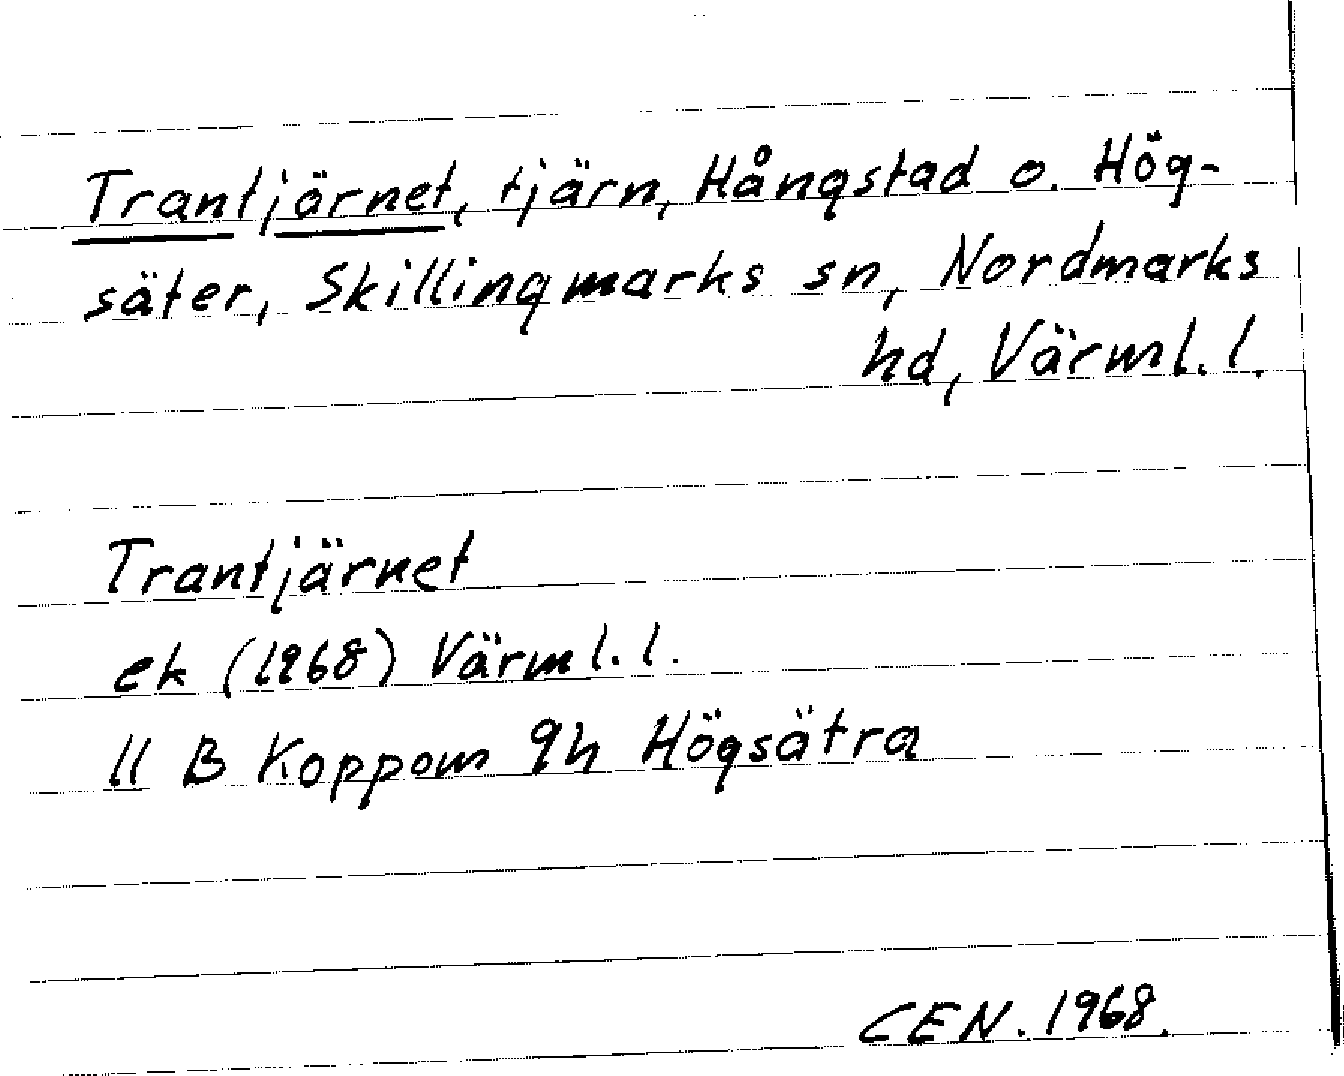 Trantjärnet, tjärn, Hångstad o. Hög-
säter, Skillingmarks sn, Nordmarks
hd, Värml. l.
Trantjärnet
ek (1968) Värml. l.
11 B Koppom 9h Högsätra
CEN. 1968.